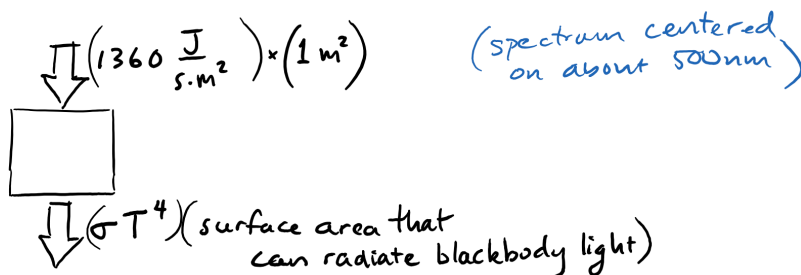 (1360 J/s·m²) × (1 m²)
(spectrum centered
on about 500nm)
(σT⁴)(surface area that
can radiate blackbody light)